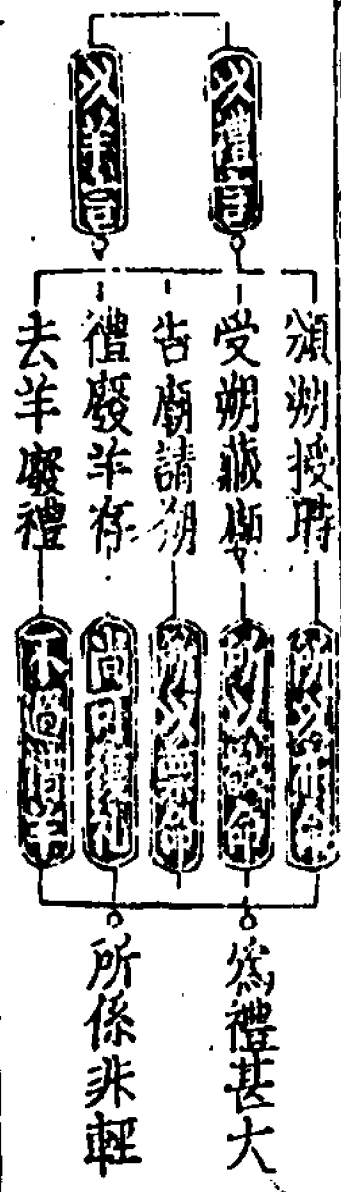 以禮言
以羊言
頒朔授時
受朔藏廟
告廟請朔
禮廢羊存
去羊廢禮
所以布命
所以敬命
所以禀命
尚可復礼
不過惜羊
為禮甚大
所係非輕